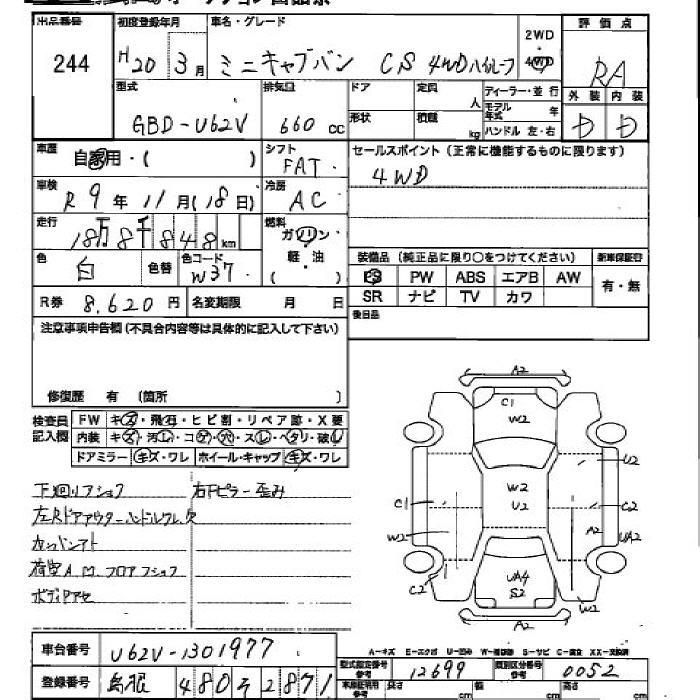 出品番号 初度登録年月 車名・グレード 2WD ・ 4WD 評価点
244 H20 年 3月 ミニキャブバン CS 4WDハイルーフ RA
型式 排気量 ドア 定員 人 ディーラー・並行 外装 内装
GBD-U62V 660 cc 形状 積載 kg モデル年式 年 ハンドル 左・右 D D
車歴 自家用・( ) シフト FAT セールスポイント(正常に機能するものに限ります)
車検 R9年11月(18日) 冷房 AC 4WD
走行 18万8千848km 燃料 ガソリン・軽油 ( )
色 白 色替 色コード W37 装備品(純正品に限り○をつけてください) 新車保証書
PS PW ABS エアB AW 有・無
R券 8,620円 名変期限 月 日 SR ナビ TV カワ
注意事項申告欄(不具合内容等は具体的に記入して下さい) 後日品
修復歴 有 (箇所 )
検査員記入欄 FW キズ・飛石・ヒビ割・リペア跡・X要
内装 キズ・汚レ・コゲ・穴・スレ・ヘタリ・破レ
ドアミラー キズ・ワレ ホイール・キャップ キズ・ワレ
下廻リアショフ 右下ピラー歪み
左Rドアアウターハンドルワレ欠
ボディアセ
A2
C1
W2
U2
C1 W2 U2 C2
W2 A2 UA2
C2 UA4 S2 W2
A2
車台番号 U62V-1301977
A-キズ E-エクボ U-凹み W-補修跡 S-サビ C-腐食 XX-交換済
登録番号 島根 480 そ 2871
型式指定番号 参考 12699 類別区分番号 参考 0052
長さ cm 幅 cm 高さ cm